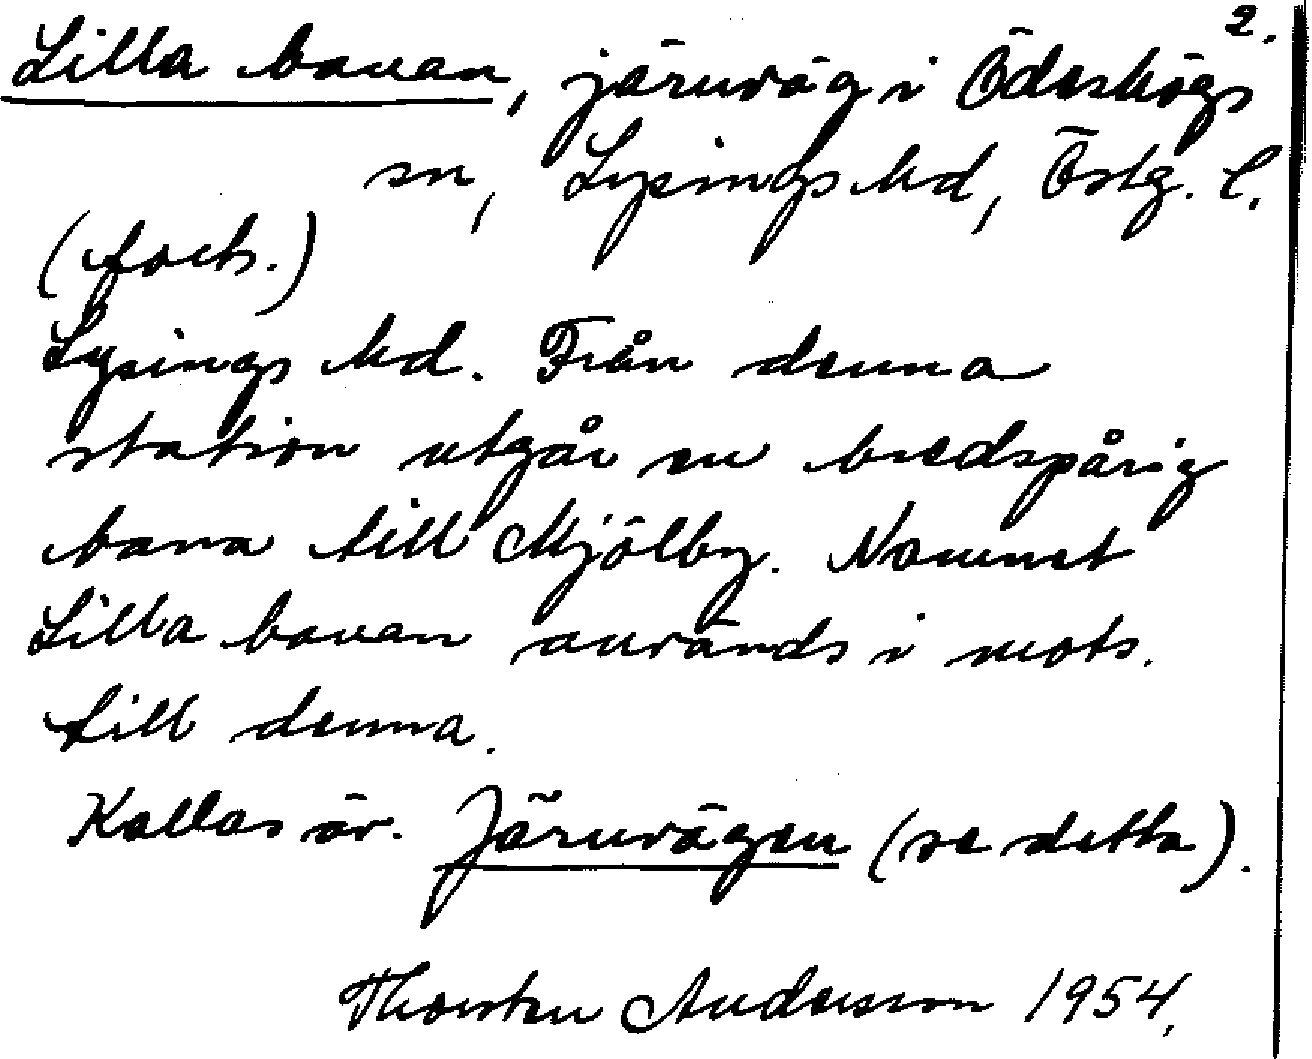 2.
Lilla banan, järnväg i Ödeshögs
sn, Lysings hd, Östg. l.
(forts.)
Lysings hd. Från denna
station utgår en bredspårig
bana till Mjölby. Namnet
Lilla banan används i mots.
till denna.
Kallas äv. Järnvägen (se detta).
Thorsten Andersson 1954.